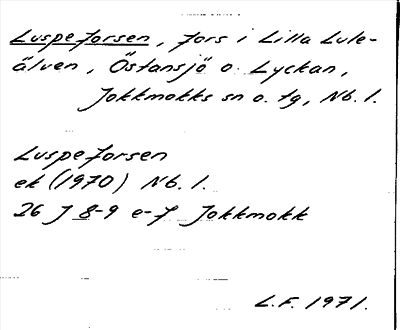 Luspeforsen, fors i Lilla Lule-
älven, Östansjö o. Lyckan,
Jokkmokks sn o. tg, Nb. l.
Luspeforsen
ek (1970) Nb. l.
26 J 8-9 e-f Jokkmokk
L.F. 1971.